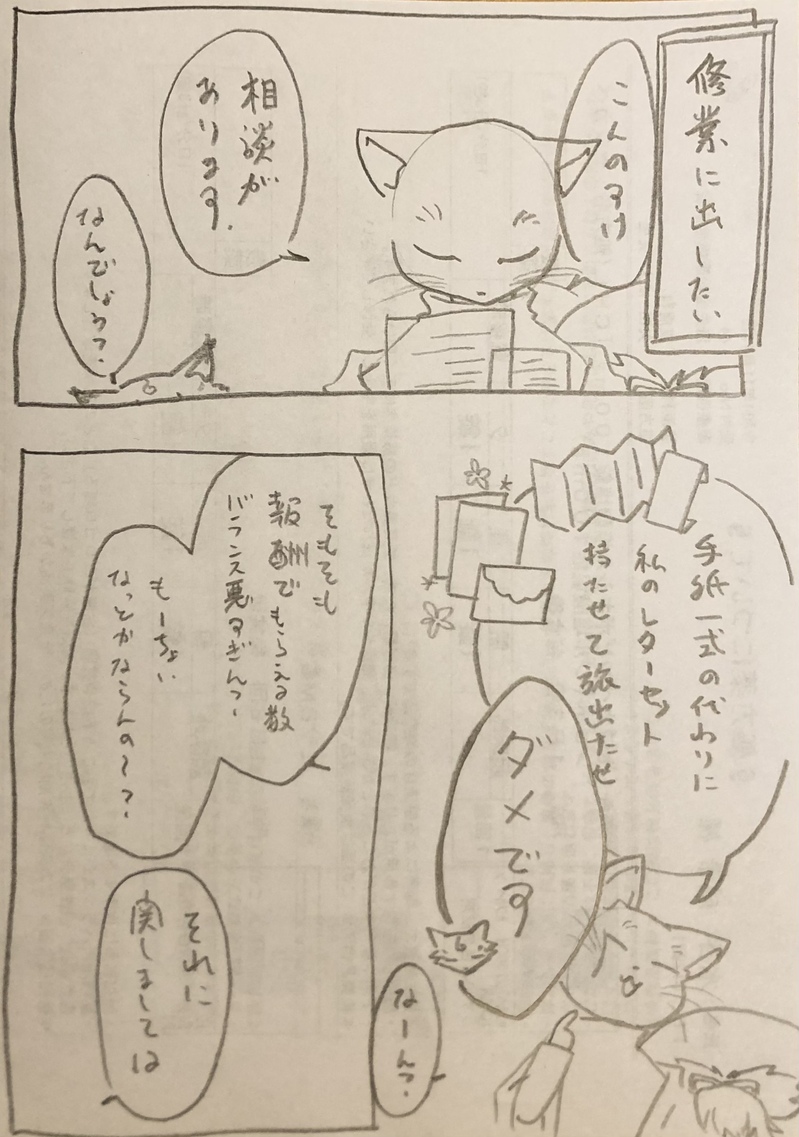 修業に出したい
こんのすけ
相談が
あります.
なんでしょう?
手紙一式の代わりに
私のレターセット
持たせて旅出たせ
ダメです
なーんっ?
そもそも
報酬でもらえる数
バランス悪すぎんっ〜
もーちょい
なっとかならんの〜?
それに
関しましては